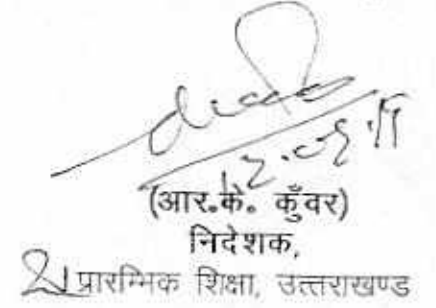 (आर.के. कुँवर)
निदेशक,
प्रारम्भिक शिक्षा, उत्तराखण्ड